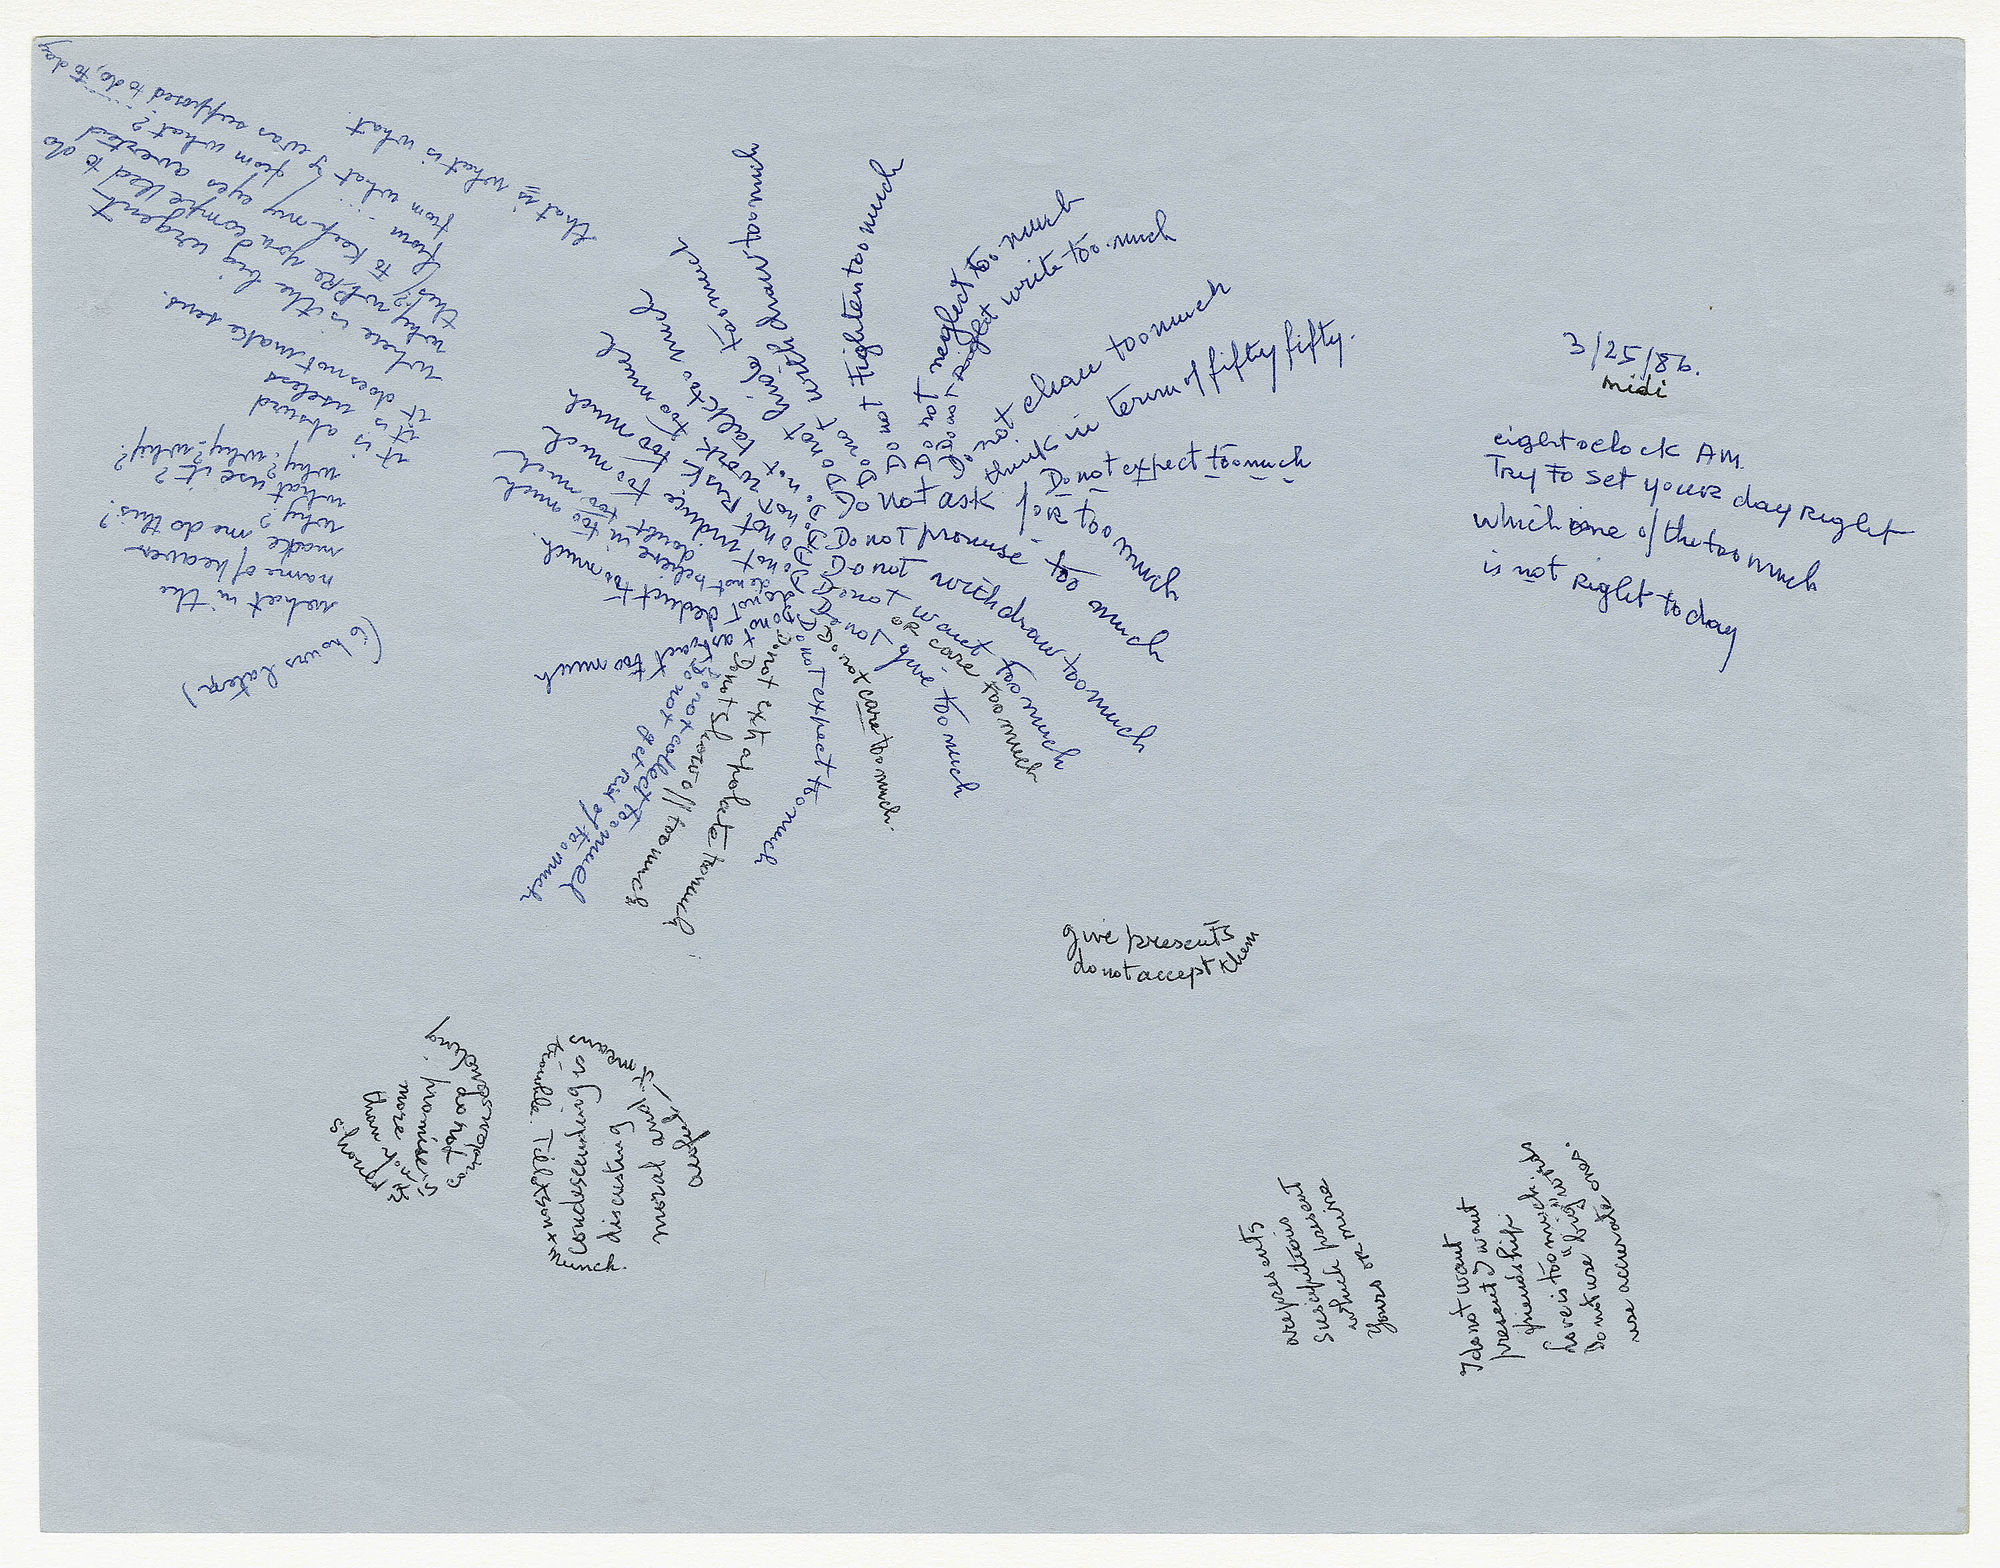 3/25/86.
midi
eight oclock AM.
Try to set your day right
which one of the too much
is not right today
Do not hide too much
Do not work too much
Do not talk too much
Do not tighten too much
Do not neglect too much
Do not write too much
Do not chau too much
think in term of fifty fifty.
Do not expect too much
Do not ask for too much
Do not promise too much
Do not withdraw too much
Do not want too much
or care too much
Do not give too much
Do not care too much.
Do not expect too much
Do not extrapolate too much
Do not show off too much
Do not collect too much
Do not get rid of too much
Do not astract too much
do not deduct too much.
do not believe in too much
do not doubt too much
Do not induce too much
Do not risk too much
(6 hours later)
what in the
name of heaven
made me do this?
why?
what use is it?
why? why? why?
it is absurd
it is useless
it does not make sens.
where is the big urgent
why were you compelled to do
this/? to keep my eyes averted
from from what?
from what I was supposed to do, to day
that is what is what.
give presents
do not accept them
do not
promise
more
than
it means
moral
disgusting
condescending
trouble.
much.
are presents
suspitious
which present
yours or mine
I do not want
present I want
friendship.
love is too much.
Do not use big
use accurate ones.